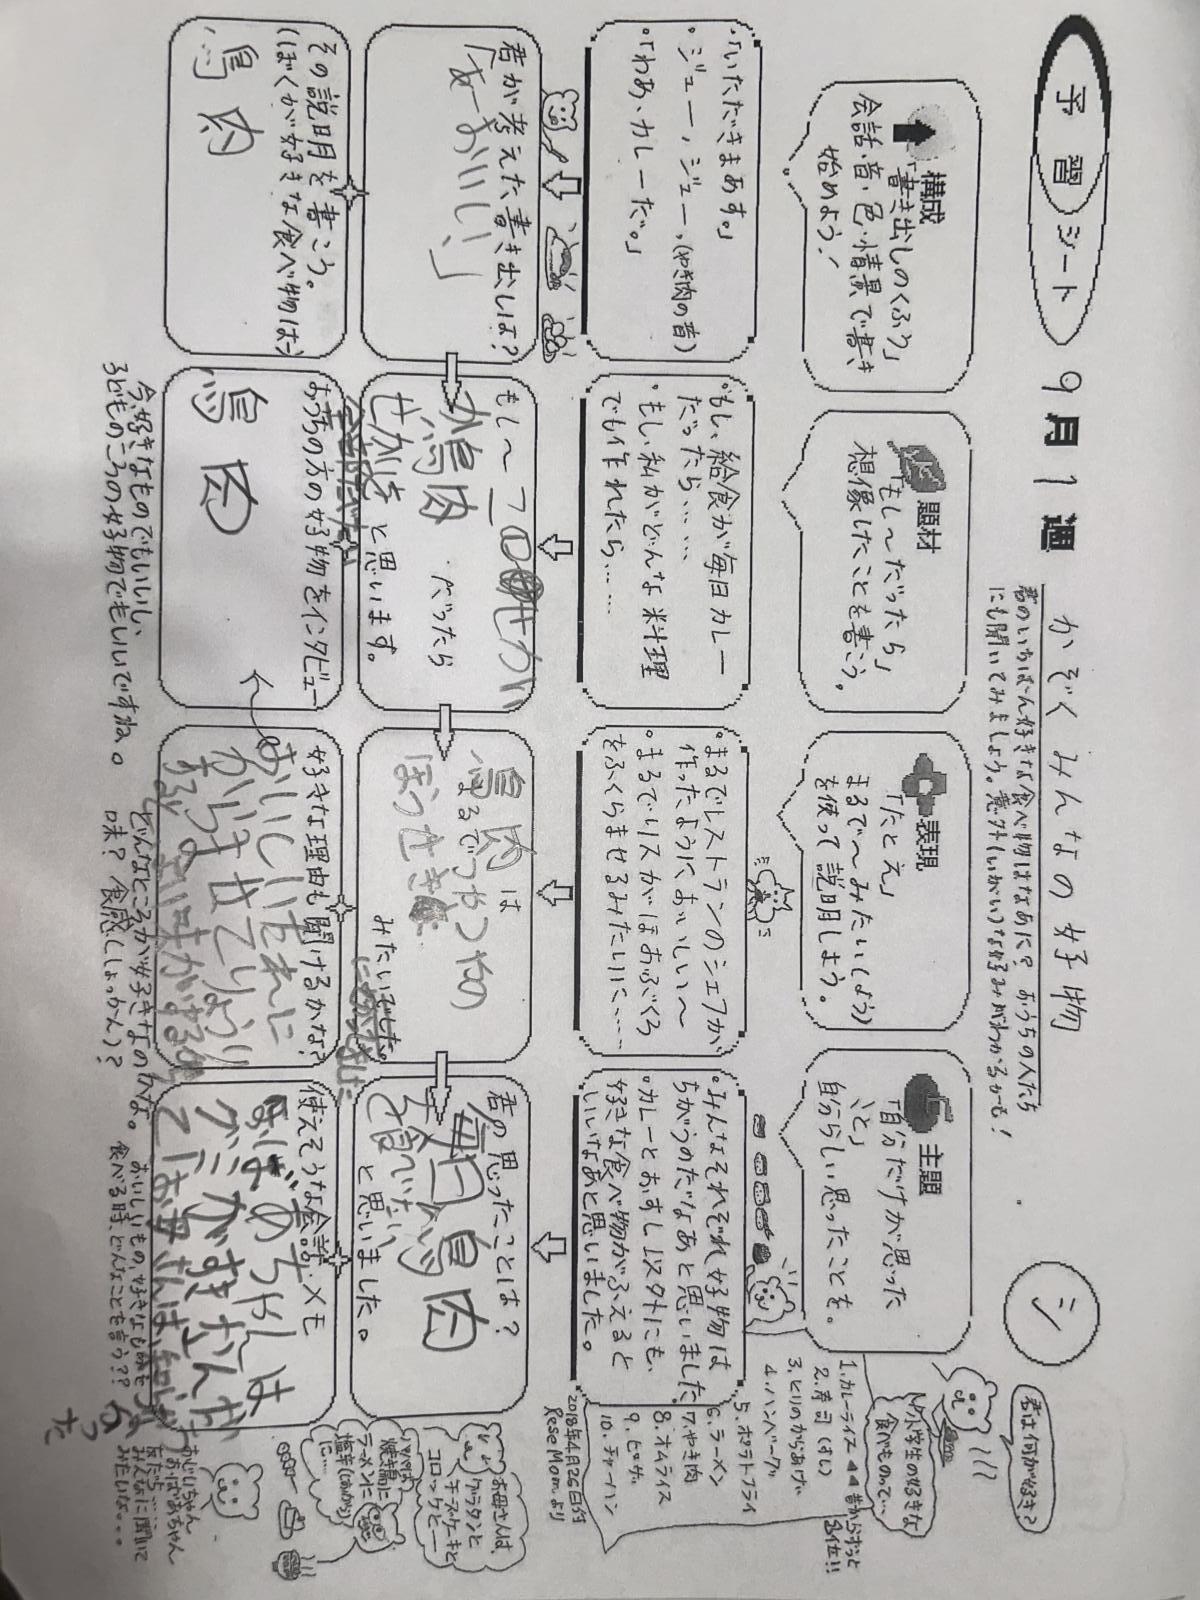 予習シート
9月1週
かぞくみんなの好物
君のいちばん好きな食べ物はなあに？おうちの人たち
にも聞いてみましょう。意外(いがい)な好みがわかるかも！
シ
君は何が好き？
構成
「書き出しのくふう」
会話・音・色・情景で書き
始めよう！
題材
「もし〜だったら」
想像したことを書こう。
表現
「たとえ」
まるで〜みたい(よう)
を使って説明しよう。
主題
「自分だけが思った
こと」
自分らしい思ったことを。
小学生の好きな
食べものって…
1.カレーライス◀◀昔からずっと
1位!!
2.寿司(すし)
3.とりのからあげ
4.ハンバーグ
5.ポテトフライ
6.ラーメン
7.やき肉
8.オムライス
9.ピザ
10.チャーハン
2018年4月26日付
ReseMomより
・「いただきまあす。」
・ジュー、ジュー、(やき肉の音)
・「わあ、カレーだ。」
・もし、給食が毎日カレー
だったら……
・もし、私がどんな料理
でも作れたら……
・まるでレストランのシェフが
作ったように、おいしい〜
・まるでリスがほおぶくろ
をふくらませるみたいに……
・みんなそれぞれ好物は
ちがうのだなあと思いました。
・カレーとおすし以外にも、
好きな食べ物がふえると
いいなあと思いました。
君が考えた書き出しは？
「あーおいしい」
もし〜
が鳥肉
だったら
と思います。
鳥肉は
まるでつやつやの
ほうせき
みたいでした。
君の思ったことは？
毎日鳥肉
と思いました。
お母さんは、
グラタンと
チーズケーキと
コロッケと―
パパは
焼き鳥に
ラーメンに
塩辛(しおから)
に…
その説明を書こう。
(ぼくが好きな食べ物は→)
鳥肉
おうちの方の好物をインタビュー
鳥肉
好きな理由も聞けるかな？
おいしいしそれに
使えそうな会話・メモ
おばあちゃんは
グミが
今、好きなものでもいいし、
子どものころの好物でもいいですね。
どんなところが好きなのかな。
味？食感(しょっかん)？
おいしいもの、好きなものを
食べる時、どんなことを言う？？
おじいちゃん
おばあちゃん
みんなに聞いて
みたいな…